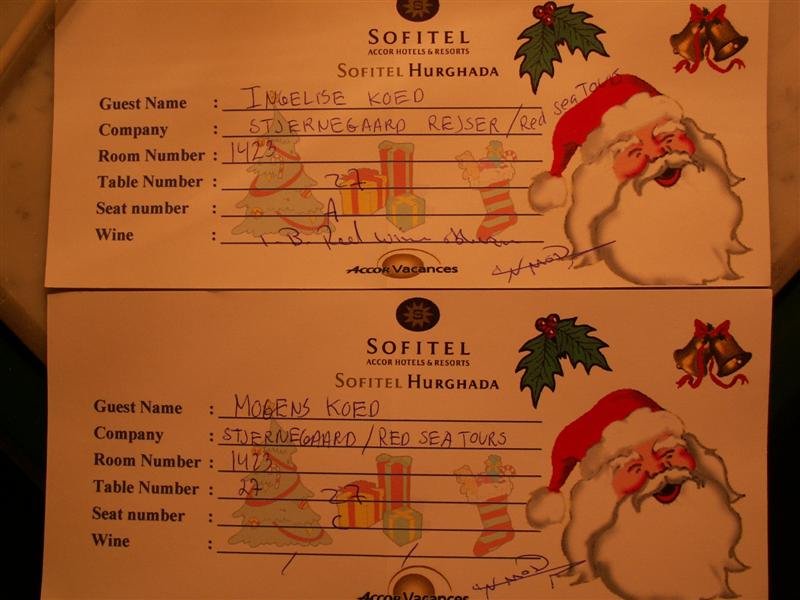 SOFITEL
ACCOR HOTELS & RESORTS
SOFITEL HURGHADA
Guest Name : INGELISE KOED
Company : STJERNEGAARD REJSER / Red Sea Tours
Room Number : 1423
Table Number : 27
Seat number : A
Wine : 1 B. Red Wine
ACCOR Vacances
SOFITEL
ACCOR HOTELS & RESORTS
SOFITEL HURGHADA
Guest Name : MOGENS KOED
Company : STJERNEGAARD / RED SEA TOURS
Room Number : 1423
Table Number : 27 27
Seat number : C
Wine : / /
ACCOR Vacances